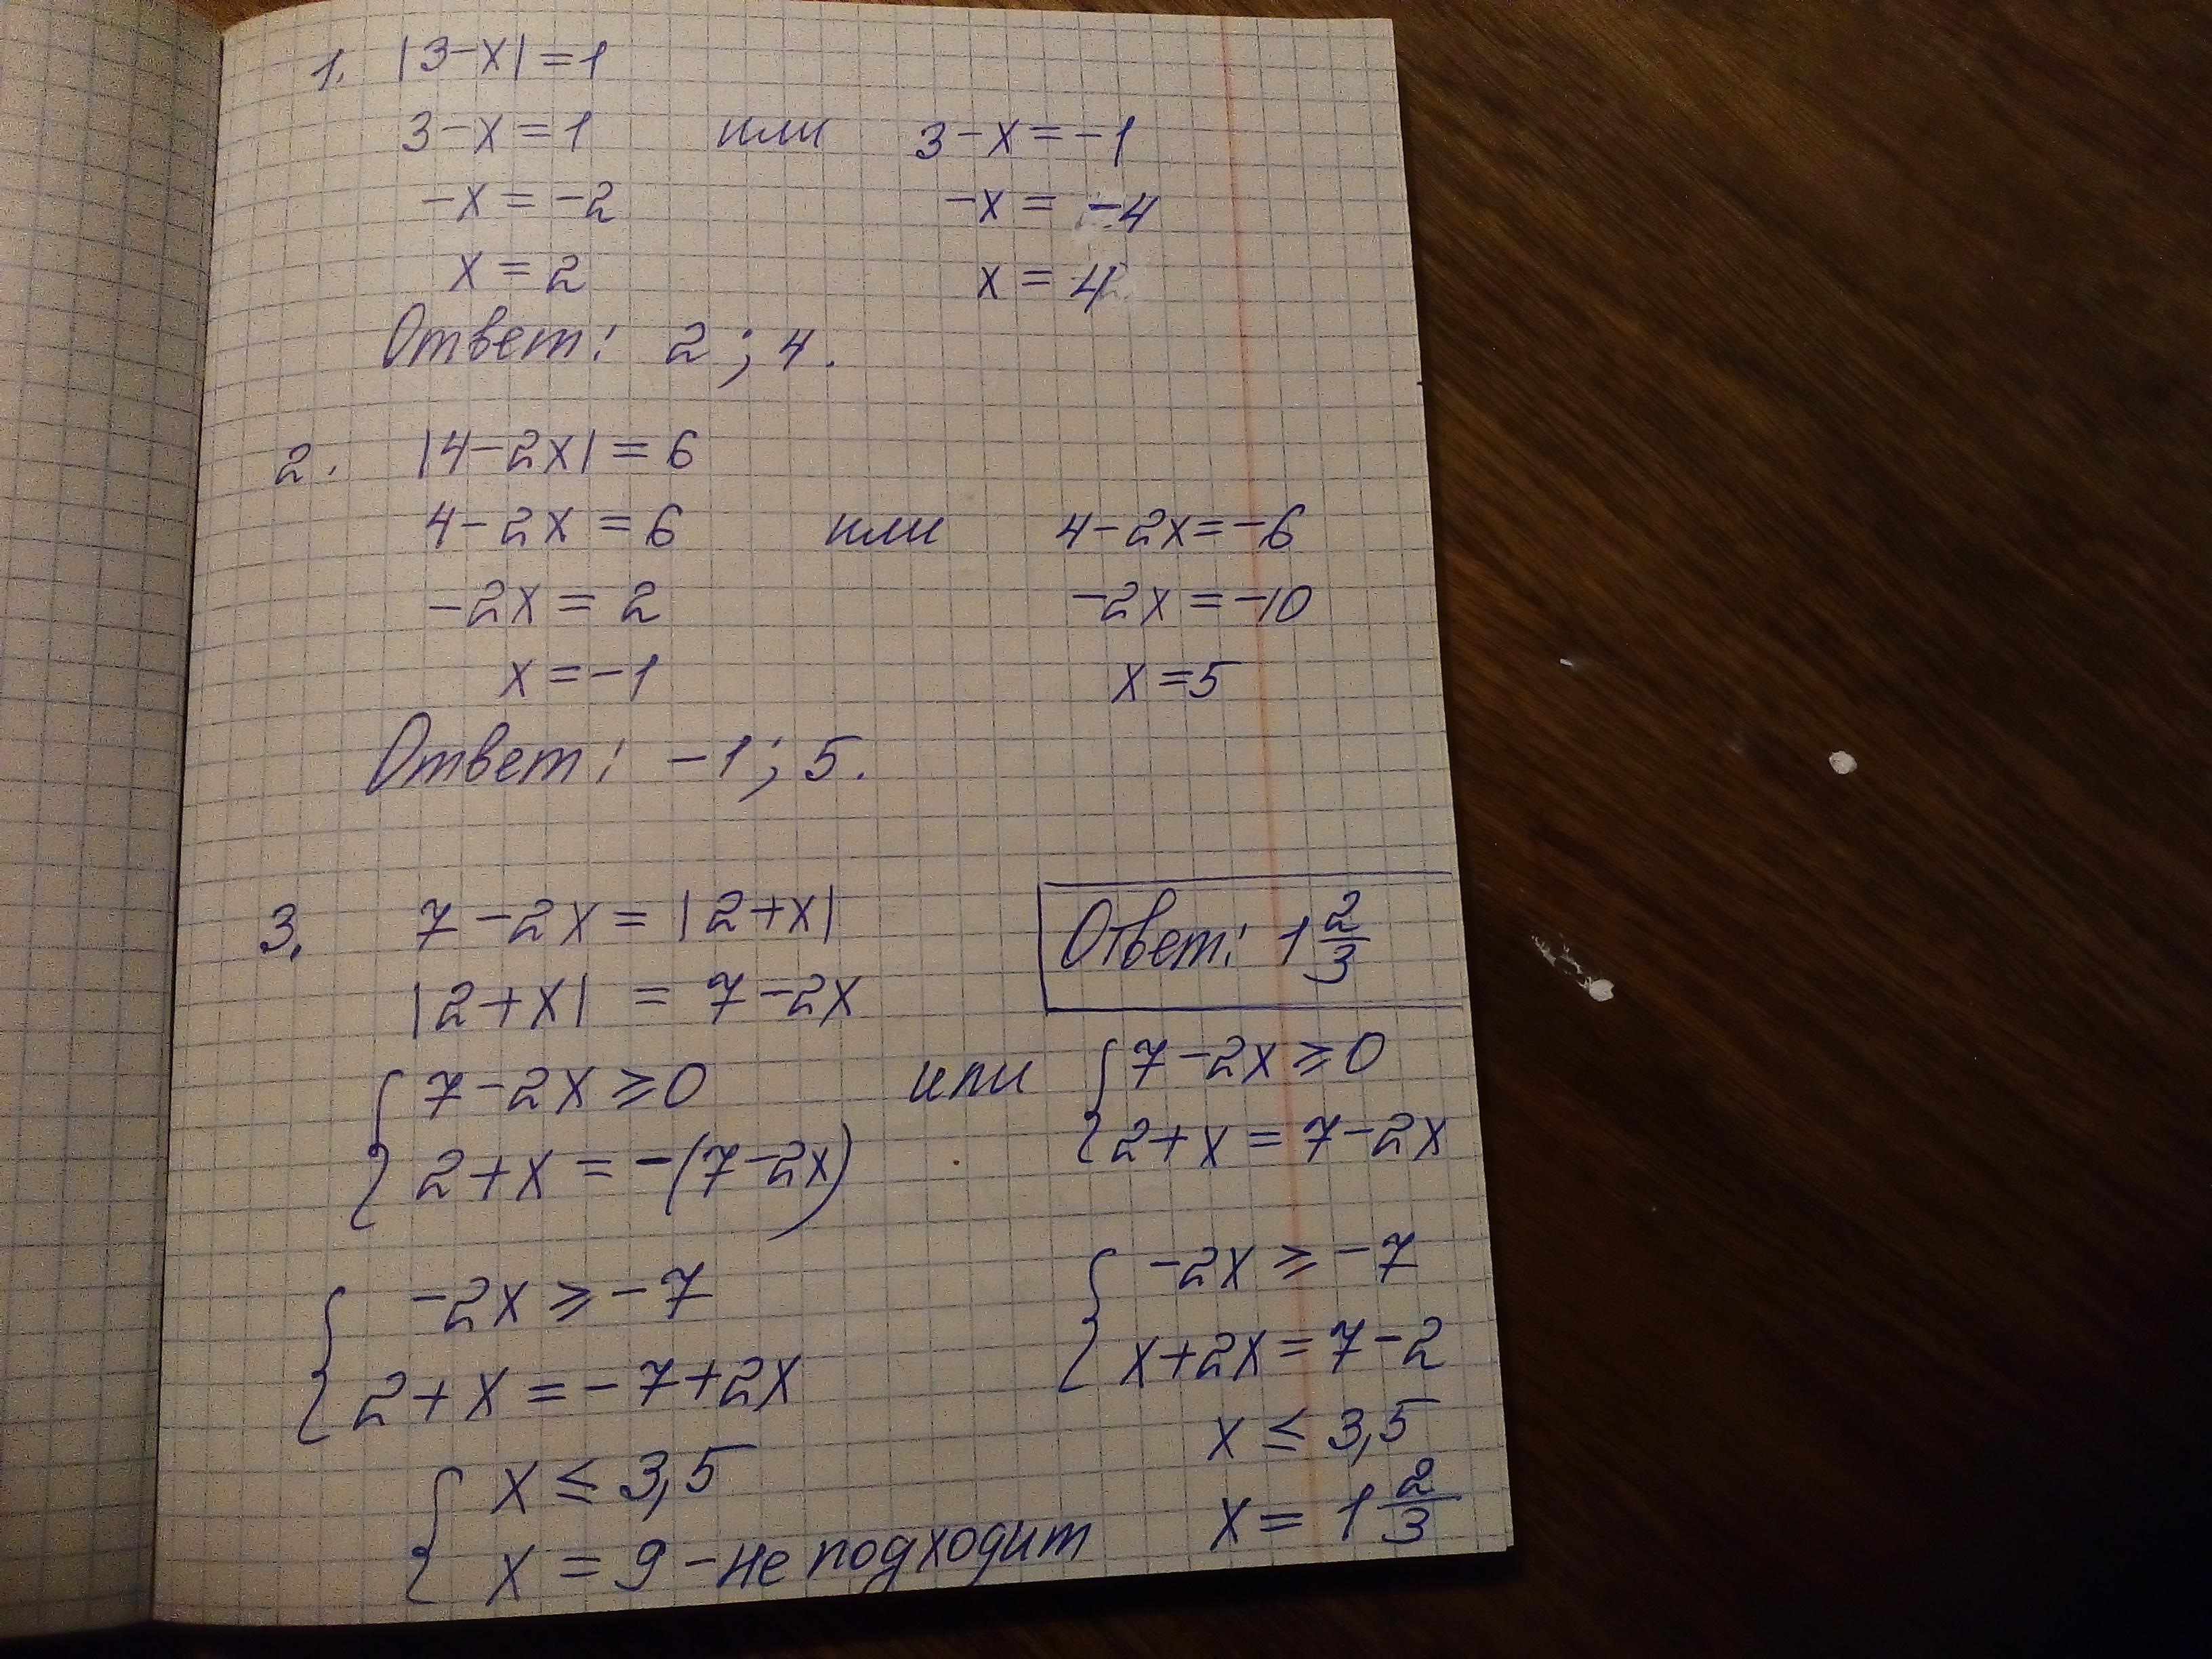 1. |3-x|=1
3-x=1 или 3-x=-1
-x=-2 -x=-4
x=2 x=4
Ответ: 2; 4.
2. |4-2x|=6
4-2x=6 или 4-2x=-6
-2x=2 -2x=-10
x=-1 x=5
Ответ: -1; 5.
3. 7-2x=|2+x|
|2+x| = 7-2x
Ответ: 1 2/3
{ 7-2x≥0 или { 7-2x≥0
2+x=-(7-2x) 2+x=7-2x
{ -2x≥-7 { -2x≥-7
2+x=-7+2x x+2x=7-2
{ x≤3,5 x≤3,5
x=9-не подходит x=1 2/3